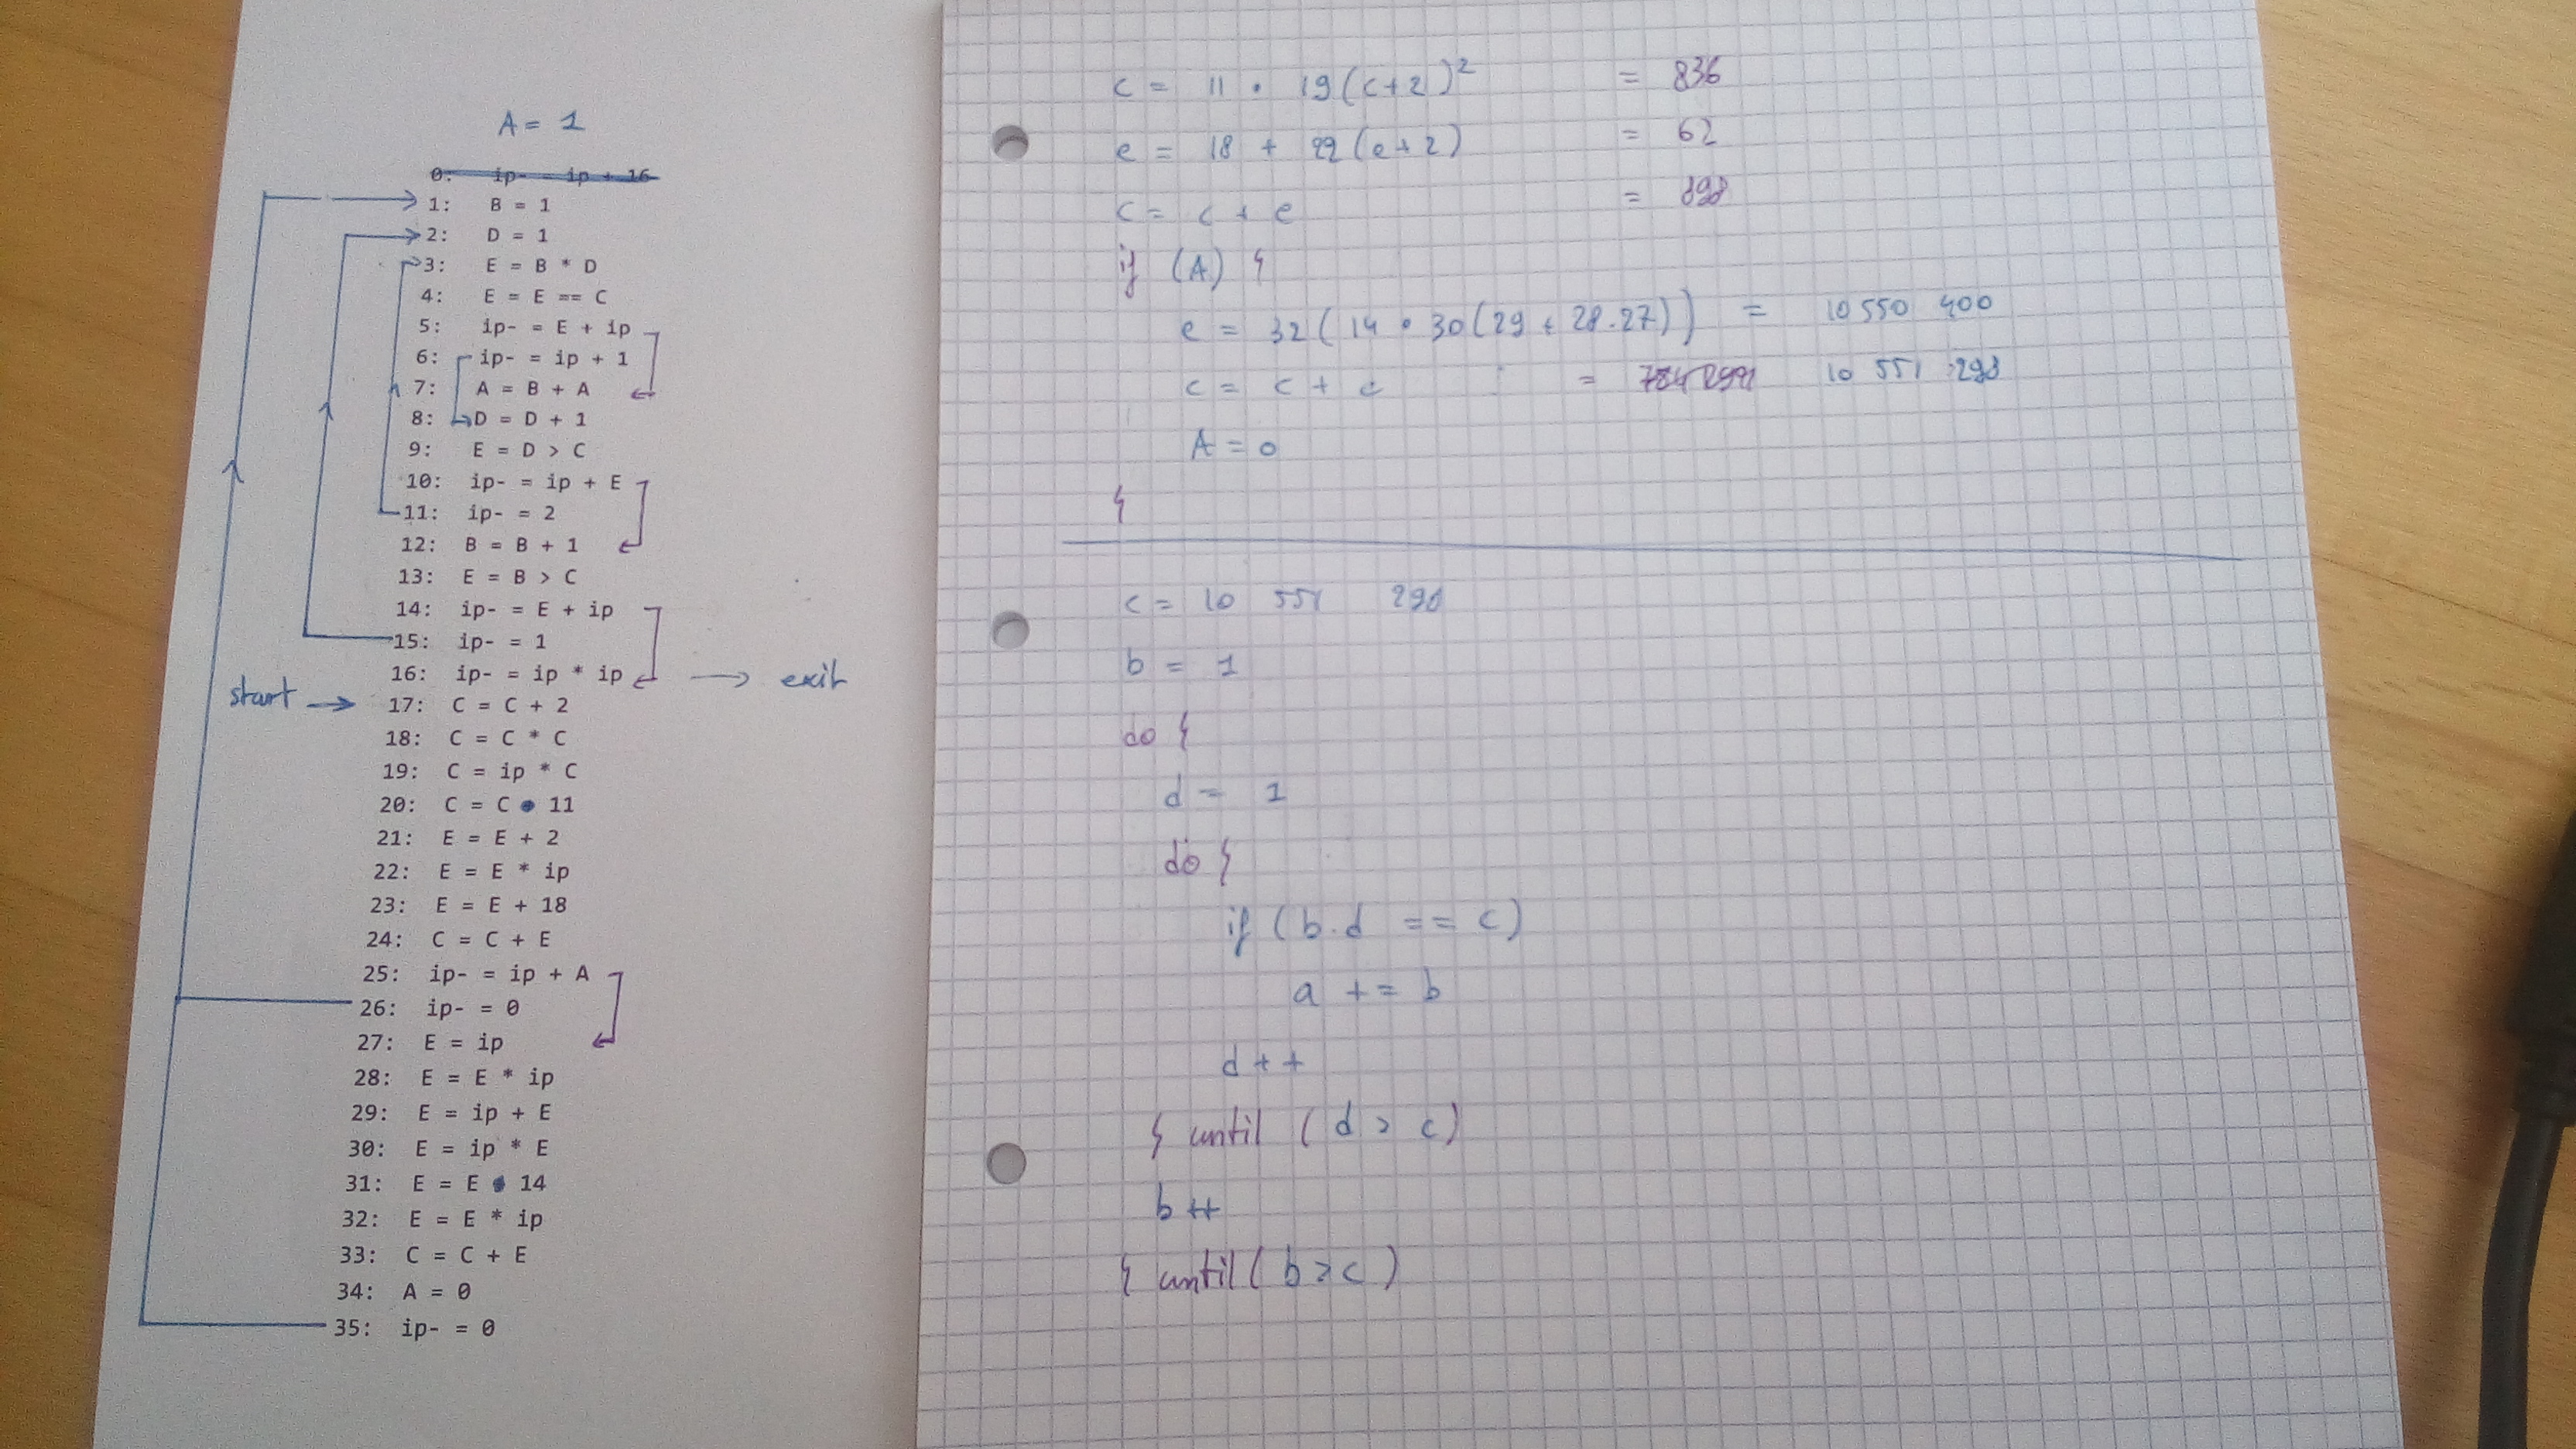 A = 1
0: ip- = ip + 16
1: B = 1
2: D = 1
3: E = B * D
4: E = E == C
5: ip- = E + ip
6: ip- = ip + 1
7: A = B + A
8: D = D + 1
9: E = D > C
10: ip- = ip + E
11: ip- = 2
12: B = B + 1
13: E = B > C
14: ip- = E + ip
15: ip- = 1
16: ip- = ip * ip → exit
start → 17: C = C + 2
18: C = C * C
19: C = ip * C
20: C = C • 11
21: E = E + 2
22: E = E * ip
23: E = E + 18
24: C = C + E
25: ip- = ip + A
26: ip- = 0
27: E = ip
28: E = E * ip
29: E = ip + E
30: E = ip * E
31: E = E • 14
32: E = E * ip
33: C = C + E
34: A = 0
35: ip- = 0
c = 11 • 19(c+2)² = 836
e = 18 + 22(e+2) = 62
c = c + e = 898
if (A) {
e = 32(14 • 30(29 + 28.27)) = 10 550 400
c = c + e = 10 551 298
A = 0
}
c = 10 551 298
b = 1
do {
d = 1
do {
if (b.d == c)
a += b
d++
} until (d > c)
b++
} until (b > c)